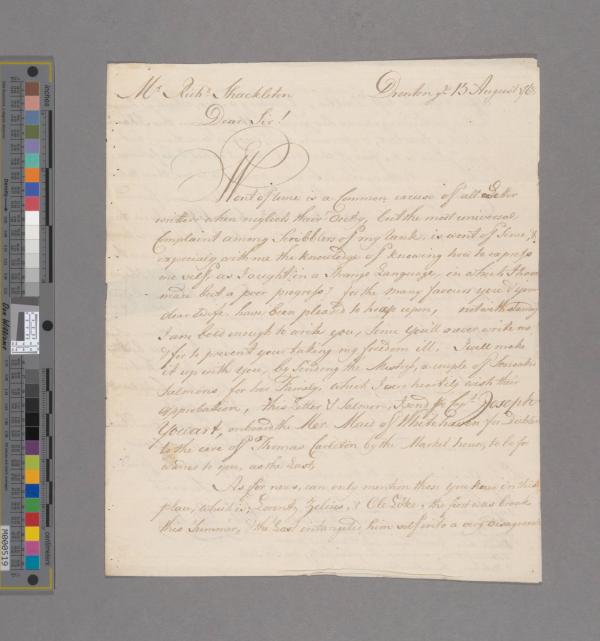 Mr. Richd. Shackleton Drenton ye 13 August
Dear Sir!
Want of time is a Common excuse of all Letter
writers when neglects their duty, but the most universal
Complaint among Scribblers of my Rank, is want of Sense, &
especially with me the knowledge of knowing how to express
me self, as I ought in a Strange Language, in which I have
made but a poor progress? for the many favours you & your
dear Lodge have been pleased to heap upon, notwithstanding
I am bold enough to write you, Since You'd never write me
& for to prevent your taking my freedom ill, I will make
it up with you, by sending the Mistress, a couple of
Salmons for her Family, which I very heartily wish their
Approbation, this Letter & Salmon, I send pr Capt. Joseph
Yowart, onboard the Mer. Maid of Whitehaven for Dublin
to the care of Thomas Carleton by the Market house, to be for
to you, as the Last,
As for news, can only mention those you know in this
place, which is; & the first was
this Summer, & the Last intangled him self into a very
inches
centimetres
Don Williams
M000519